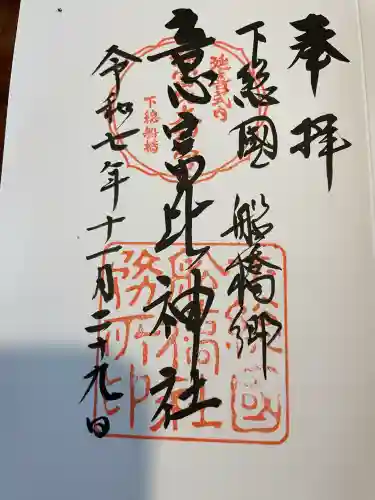 奉拝
下総國 船橋郷
意富比神社
令和七年十一月二十九日
延喜式内
下總船橋